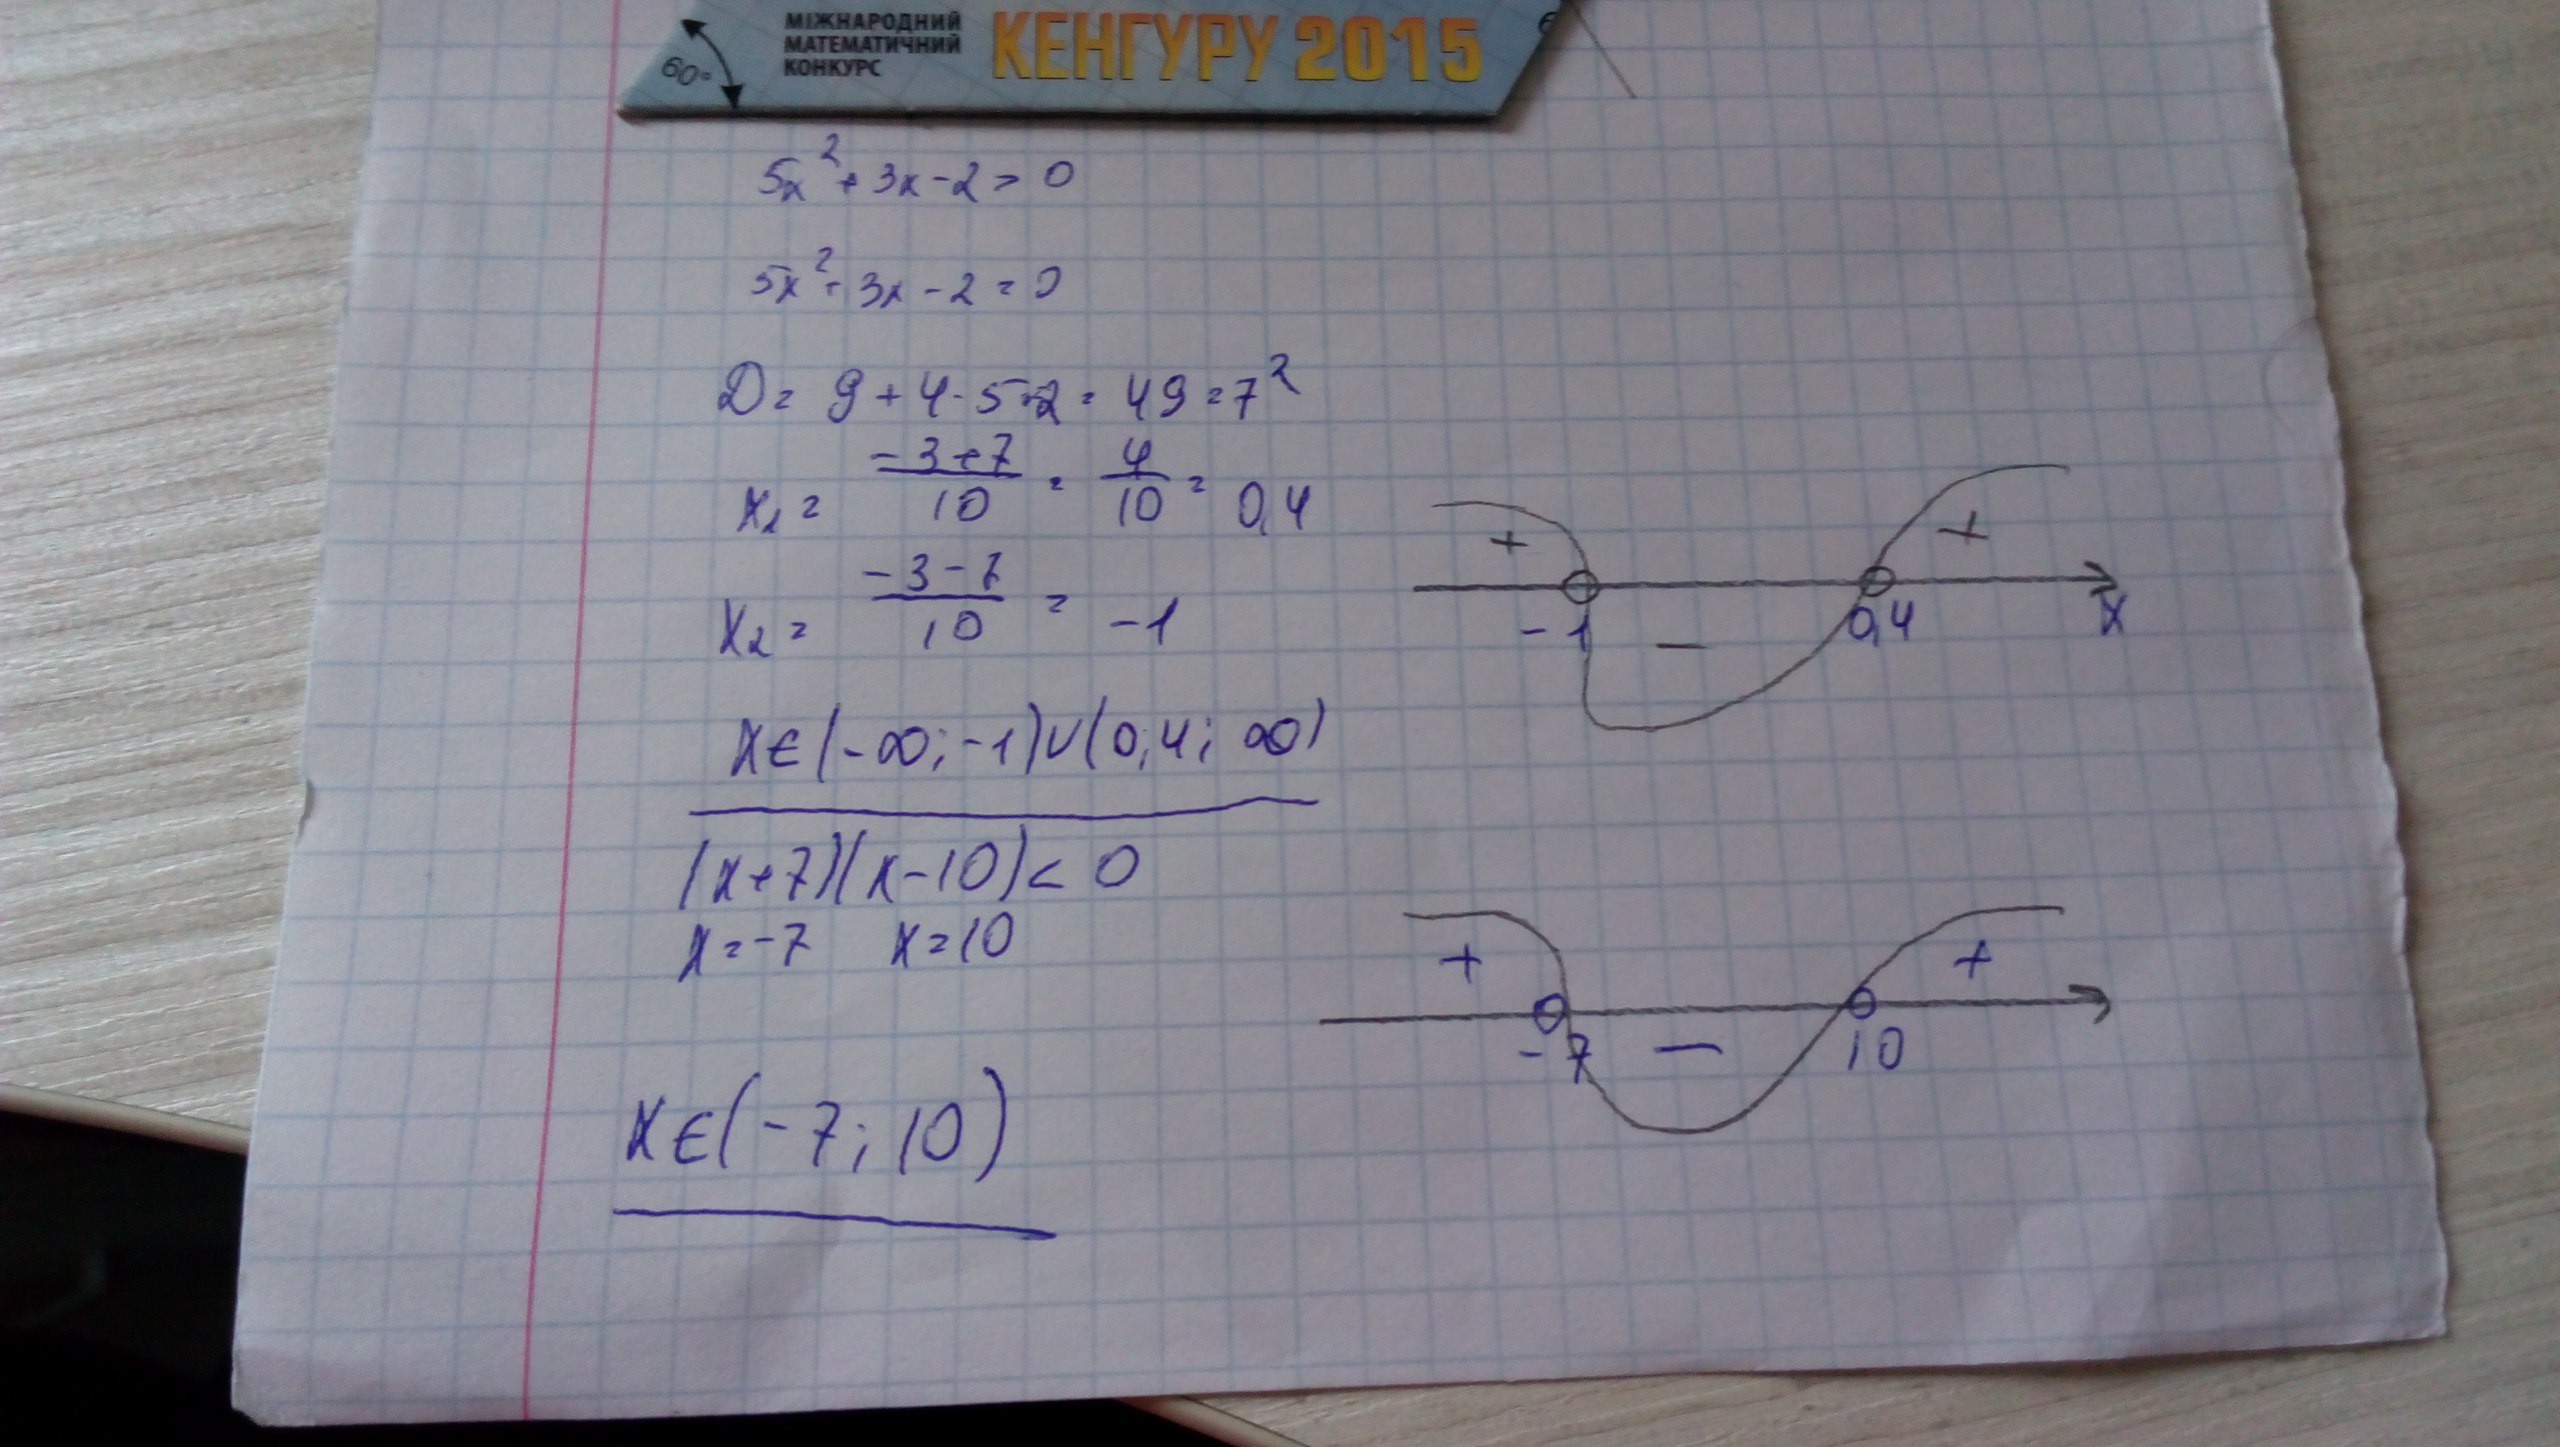 МІЖНАРОДНИЙ
МАТЕМАТИЧНИЙ
КОНКУРС
КЕНГУРУ 2015
60°
5x² + 3x - 2 > 0
5x² + 3x - 2 = 0
D = 9 + 4 · 5 · 2 = 49 = 7²
x₁ = (-3+7)/10 = 4/10 = 0,4
x₂ = (-3-7)/10 = -1
+ - +
-1 0,4 x
x∈(-∞;-1)∪(0,4; ∞)
(x+7)(x-10) < 0
x=-7 x=10
+ +
-7 - 10
x∈(-7; 10)